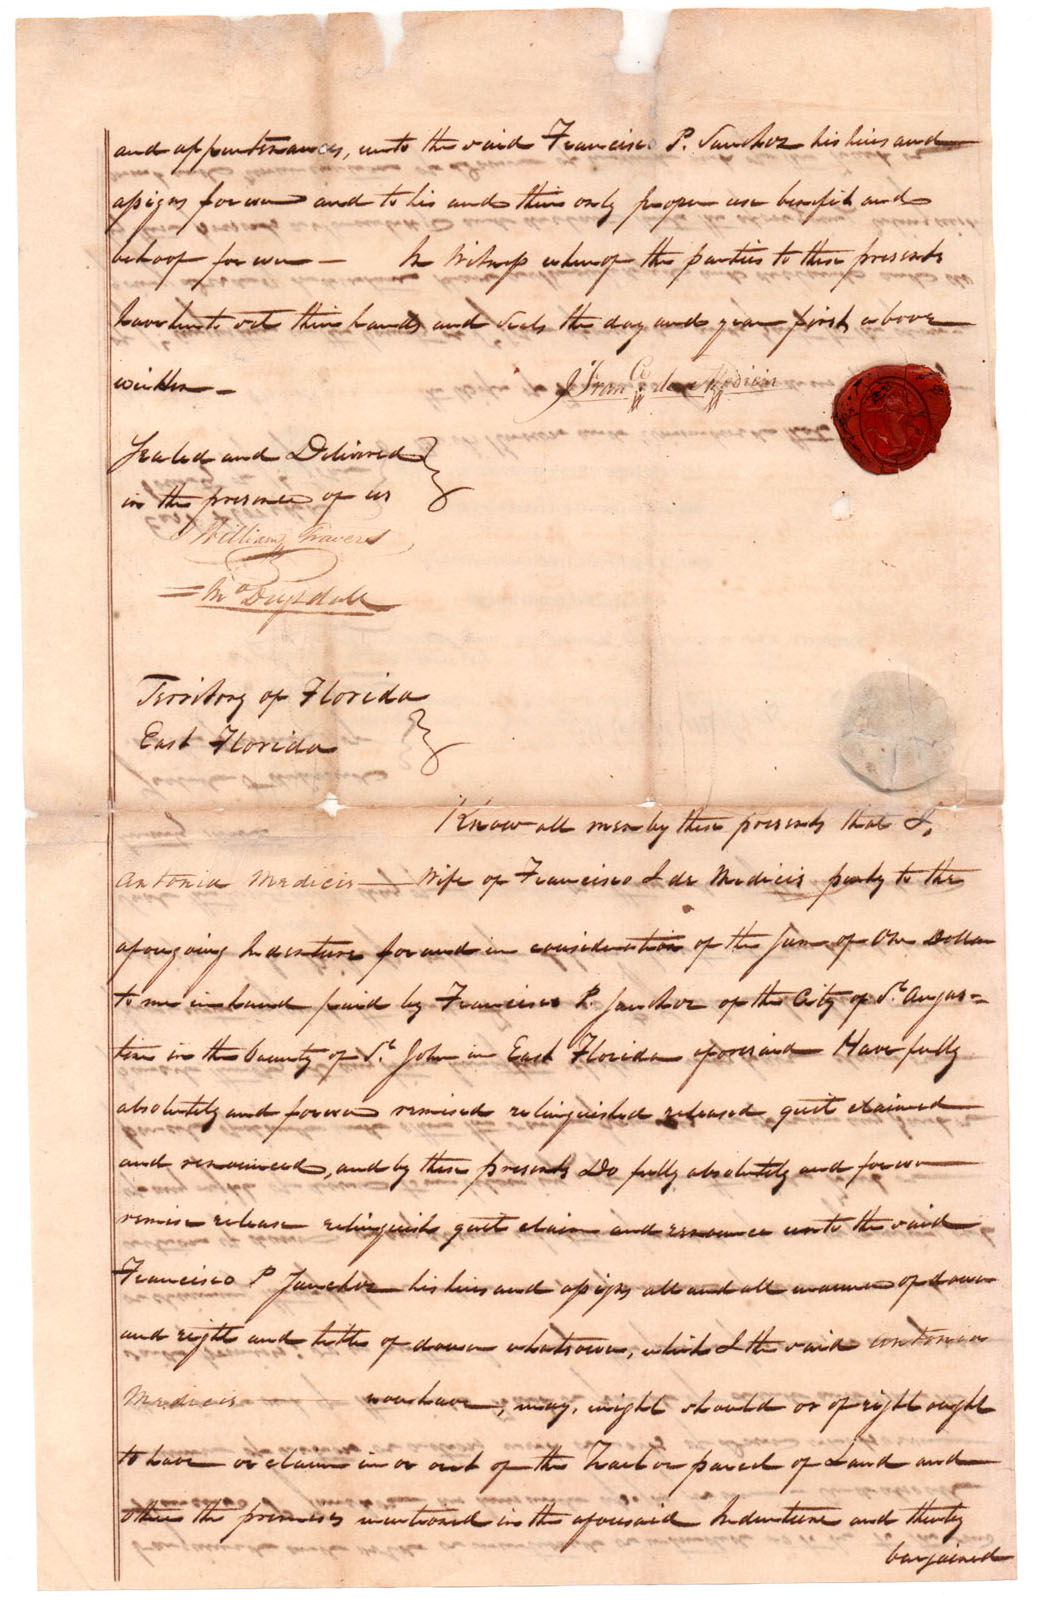 and appurtenances, unto the said Francisco P. Sanchez his heirs and
assigns forever and to his and their only proper use benefit and
behoof forever — In Witness whereof the parties to these presents
have hereunto set their hands and Seals the day and year first above
written —
Fran.co J. de Medicis
Sealed and Delivered
in the presence of us
William Travers
Drysdale
Territory of Florida
East Florida
Know all men by these presents that I,
Antonia Medicis — Wife of Francisco J de Medicis party to the
aforegoing Indenture for and in consideration of the Sum of One Dollar
to me in hand paid by Francisco P. Sanchez of the City of St. Augus=
tine in the County of St. John in East Florida aforesaid Have fully
absolutely and forever remised relinquished released quit claimed
and renounced, and by these presents Do fully absolutely and forever
remise release relinquish quit claim and renounce unto the said
Francisco P Sanchez his heirs and assigns all and all manner of dower
and right and title of dower whatsoever, which I the said Antonia
Medicis — now have, may, might should or of right ought
to have or claim in or out of the Tract or parcel of Land and
other the premises mentioned in the aforesaid Indenture and thereby
bargained